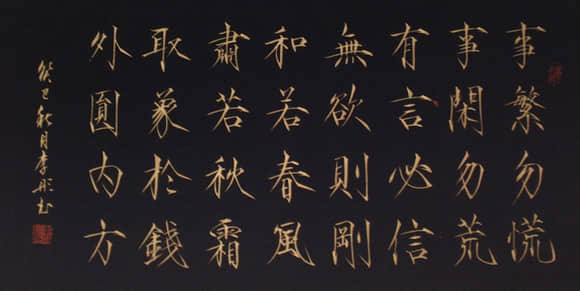 事繁勿慌
事閑勿荒
有言必信
無欲則剛
和若春風
肅若秋霜
取象於錢
外圓内方
癸巳秋月李彤书